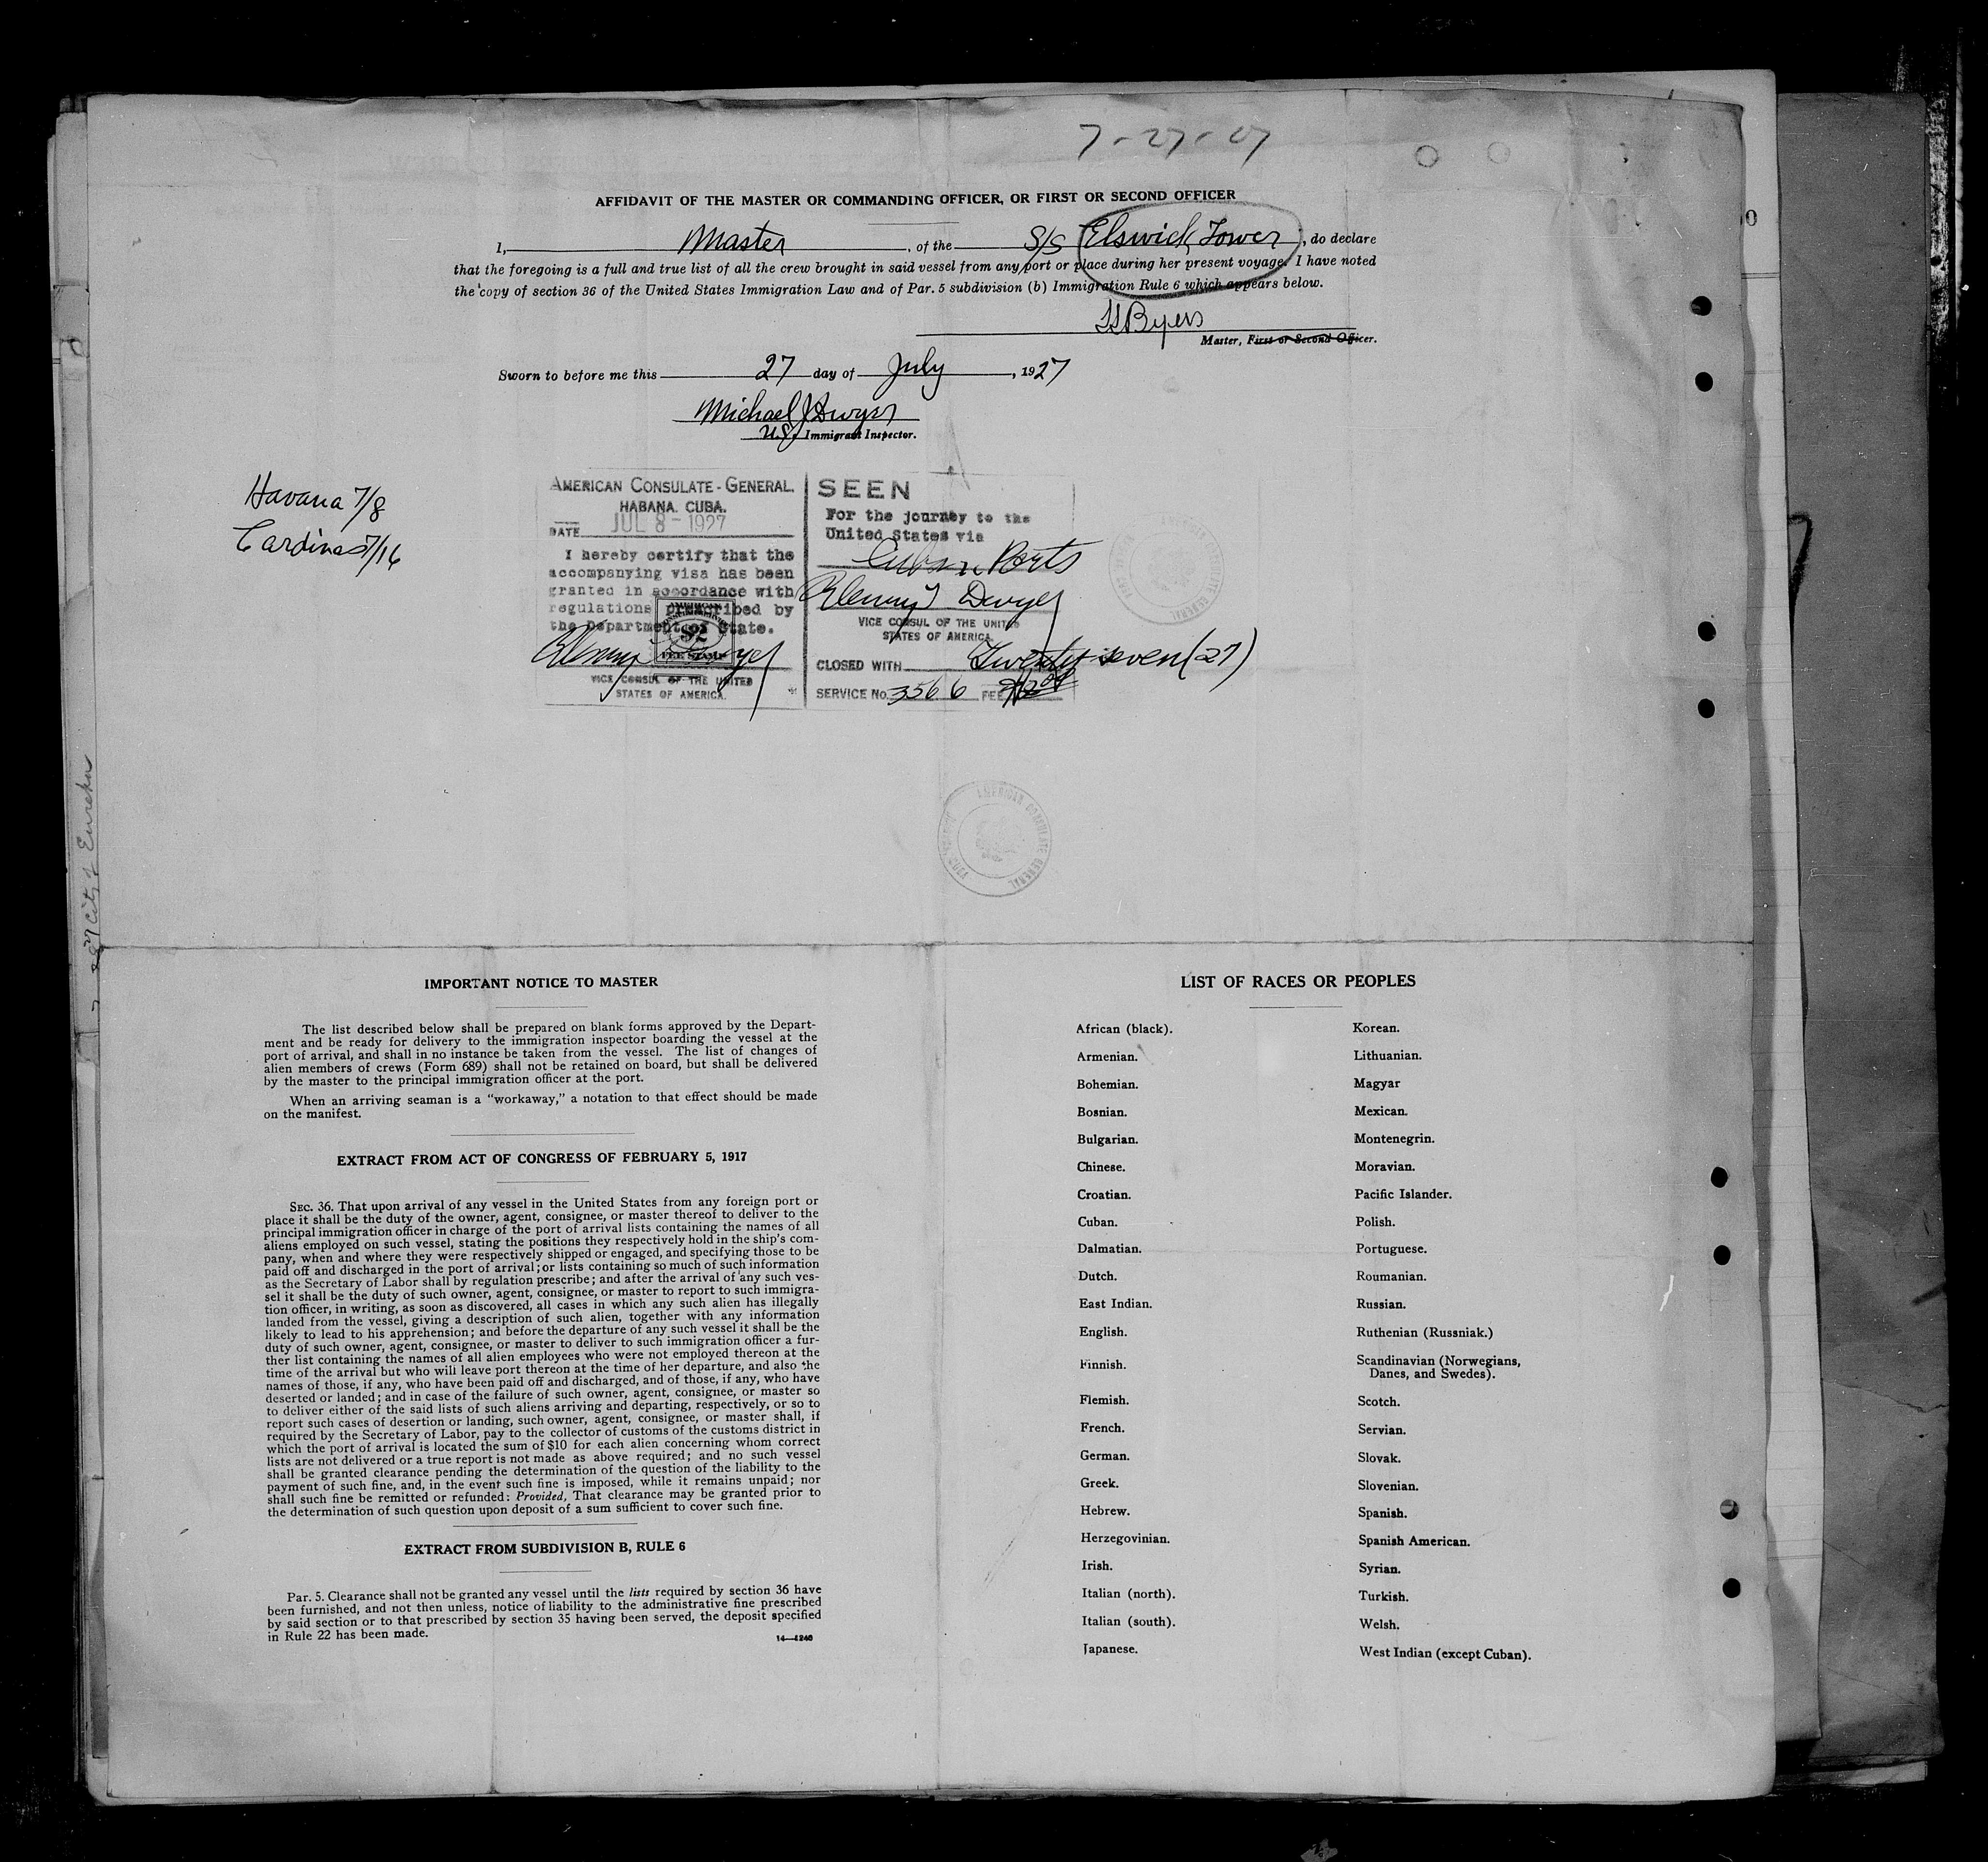 7-27-27
AFFIDAVIT OF THE MASTER OR COMMANDING OFFICER, OR FIRST OR SECOND OFFICER
I, Master, of the S/S Elswick Tower, do declare
that the foregoing is a full and true list of all the crew brought in said vessel from any port or place during her present voyage. I have noted
the copy of section 36 of the United States Immigration Law and of Par. 5 subdivision (b) Immigration Rule 6 which appears below.
Byers
Master, First or Second Officer.
Sworn to before me this 27 day of July, 1927
Michael J Dwyer
U.S. Immigrant Inspector.
Havana 7/8
Cardinas 7/16
AMERICAN CONSULATE-GENERAL.
HABANA. CUBA.
DATE JUL 8- 1927
I hereby certify that the
accompanying visa has been
granted in accordance with
regulations prescribed by
the Department of State.
$2
FEE STAMP
VICE CONSUL OF THE UNITED
STATES OF AMERICA.
SEEN
For the journey to the
United States via
Cuban Ports
Dwyer
VICE CONSUL OF THE UNITED
STATES OF AMERICA.
CLOSED WITH Twenty seven (27)
SERVICE No. 3566 FEE
AMERICAN CONSULATE GENERAL
City of Eureka
IMPORTANT NOTICE TO MASTER
The list described below shall be prepared on blank forms approved by the Depart-
ment and be ready for delivery to the immigration inspector boarding the vessel at the
port of arrival, and shall in no instance be taken from the vessel. The list of changes of
alien members of crews (Form 689) shall not be retained on board, but shall be delivered
by the master to the principal immigration officer at the port.
When an arriving seaman is a "workaway," a notation to that effect should be made
on the manifest.
EXTRACT FROM ACT OF CONGRESS OF FEBRUARY 5, 1917
SEC. 36. That upon arrival of any vessel in the United States from any foreign port or
place it shall be the duty of the owner, agent, consignee, or master thereof to deliver to the
principal immigration officer in charge of the port of arrival lists containing the names of all
aliens employed on such vessel, stating the positions they respectively hold in the ship's com-
pany, when and where they were respectively shipped or engaged, and specifying those to be
paid off and discharged in the port of arrival; or lists containing so much of such information
as the Secretary of Labor shall by regulation prescribe; and after the arrival of any such ves-
sel it shall be the duty of such owner, agent, consignee, or master to report to such immigra-
tion officer, in writing, as soon as discovered, all cases in which any such alien has illegally
landed from the vessel, giving a description of such alien, together with any information
likely to lead to his apprehension; and before the departure of any such vessel it shall be the
duty of such owner, agent, consignee, or master to deliver to such immigration officer a fur-
ther list containing the names of all alien employees who were not employed thereon at the
time of the arrival but who will leave port thereon at the time of her departure, and also the
names of those, if any, who have been paid off and discharged, and of those, if any, who have
deserted or landed; and in case of the failure of such owner, agent, consignee, or master so
to deliver either of the said lists of such aliens arriving and departing, respectively, or so to
report such cases of desertion or landing, such owner, agent, consignee, or master shall, if
required by the Secretary of Labor, pay to the collector of customs of the customs district in
which the port of arrival is located the sum of $10 for each alien concerning whom correct
lists are not delivered or a true report is not made as above required; and no such vessel
shall be granted clearance pending the determination of the question of the liability to the
payment of such fine, and, in the event such fine is imposed, while it remains unpaid; nor
shall such fine be remitted or refunded: Provided, That clearance may be granted prior to
the determination of such question upon deposit of a sum sufficient to cover such fine.
EXTRACT FROM SUBDIVISION B, RULE 6
Par. 5. Clearance shall not be granted any vessel until the lists required by section 36 have
been furnished, and not then unless, notice of liability to the administrative fine prescribed
by said section or to that prescribed by section 35 having been served, the deposit specified
in Rule 22 has been made.
14—1240
LIST OF RACES OR PEOPLES
African (black).
Armenian.
Bohemian.
Bosnian.
Bulgarian.
Chinese.
Croatian.
Cuban.
Dalmatian.
Dutch.
East Indian.
English.
Finnish.
Flemish.
French.
German.
Greek.
Hebrew.
Herzegovinian.
Irish.
Italian (north).
Italian (south).
Japanese.
Korean.
Lithuanian.
Magyar
Mexican.
Montenegrin.
Moravian.
Pacific Islander.
Polish.
Portuguese.
Roumanian.
Russian.
Ruthenian (Russniak.)
Scandinavian (Norwegians,
Danes, and Swedes).
Scotch.
Servian.
Slovak.
Slovenian.
Spanish.
Spanish American.
Syrian.
Turkish.
Welsh.
West Indian (except Cuban).